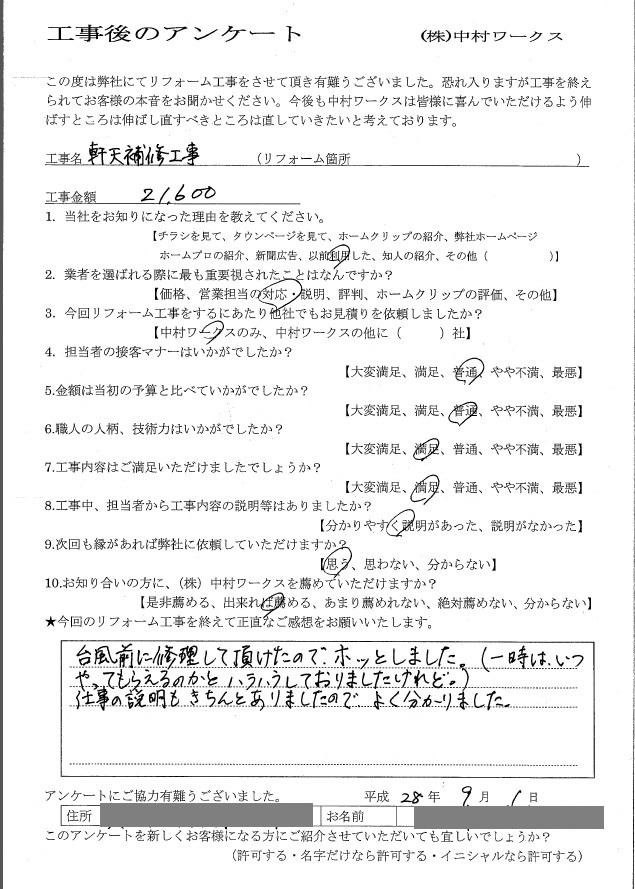 工事後のアンケート (株)中村ワークス
この度は弊社にてリフォーム工事をさせて頂き有難うございました。恐れ入りますが工事を終え
られてお客様の本音をお聞かせください。今後も中村ワークスは皆様に喜んでいただけるよう伸
ばすところは伸ばし直すべきところは直していきたいと考えております。
工事名 軒天補修工事 (リフォーム箇所 )
工事金額 21,600
1. 当社をお知りになった理由を教えてください。
【チラシを見て、タウンページを見て、ホームクリップの紹介、弊社ホームページ
ホームプロの紹介、新聞広告、以前利用した、知人の紹介、その他（ )】
2. 業者を選ばれる際に最も重要視されたことはなんですか？
【価格、営業担当の対応・説明、評判、ホームクリップの評価、その他】
3. 今回リフォーム工事をするにあたり他社でもお見積りを依頼しましたか？
【中村ワークスのみ、中村ワークスの他に（ ）社】
4. 担当者の接客マナーはいかがでしたか？
【大変満足、満足、普通、やや不満、最悪】
5.金額は当初の予算と比べていかがでしたか？
【大変満足、満足、普通、やや不満、最悪】
6.職人の人柄、技術力はいかがでしたか？
【大変満足、満足、普通、やや不満、最悪】
7.工事内容はご満足いただけましたでしょうか？
【大変満足、満足、普通、やや不満、最悪】
8.工事中、担当者から工事内容の説明等はありましたか？
【分かりやすく説明があった、説明がなかった】
9.次回も縁があれば弊社に依頼していただけますか？
【思う、思わない、分からない】
10.お知り合いの方に、（株）中村ワークスを薦めていただけますか？
【是非薦める、出来れば薦める、あまり薦めれない、絶対薦めない、分からない】
★今回のリフォーム工事を終えて正直なご感想をお願いいたします。
台風前に修理して頂けたので、ホッとしました。(一時は、いつ
やってもらえるのかと ハラハラしておりましたけれど。)
仕事の説明も きちんとありましたので、よく分かりました。
アンケートにご協力有難うございました。 平成 28 年 9 月 1 日
住所 お名前
このアンケートを新しくお客様になる方にご紹介させていただいても宜しいでしょうか？
（許可する・名字だけなら許可する・イニシャルなら許可する）